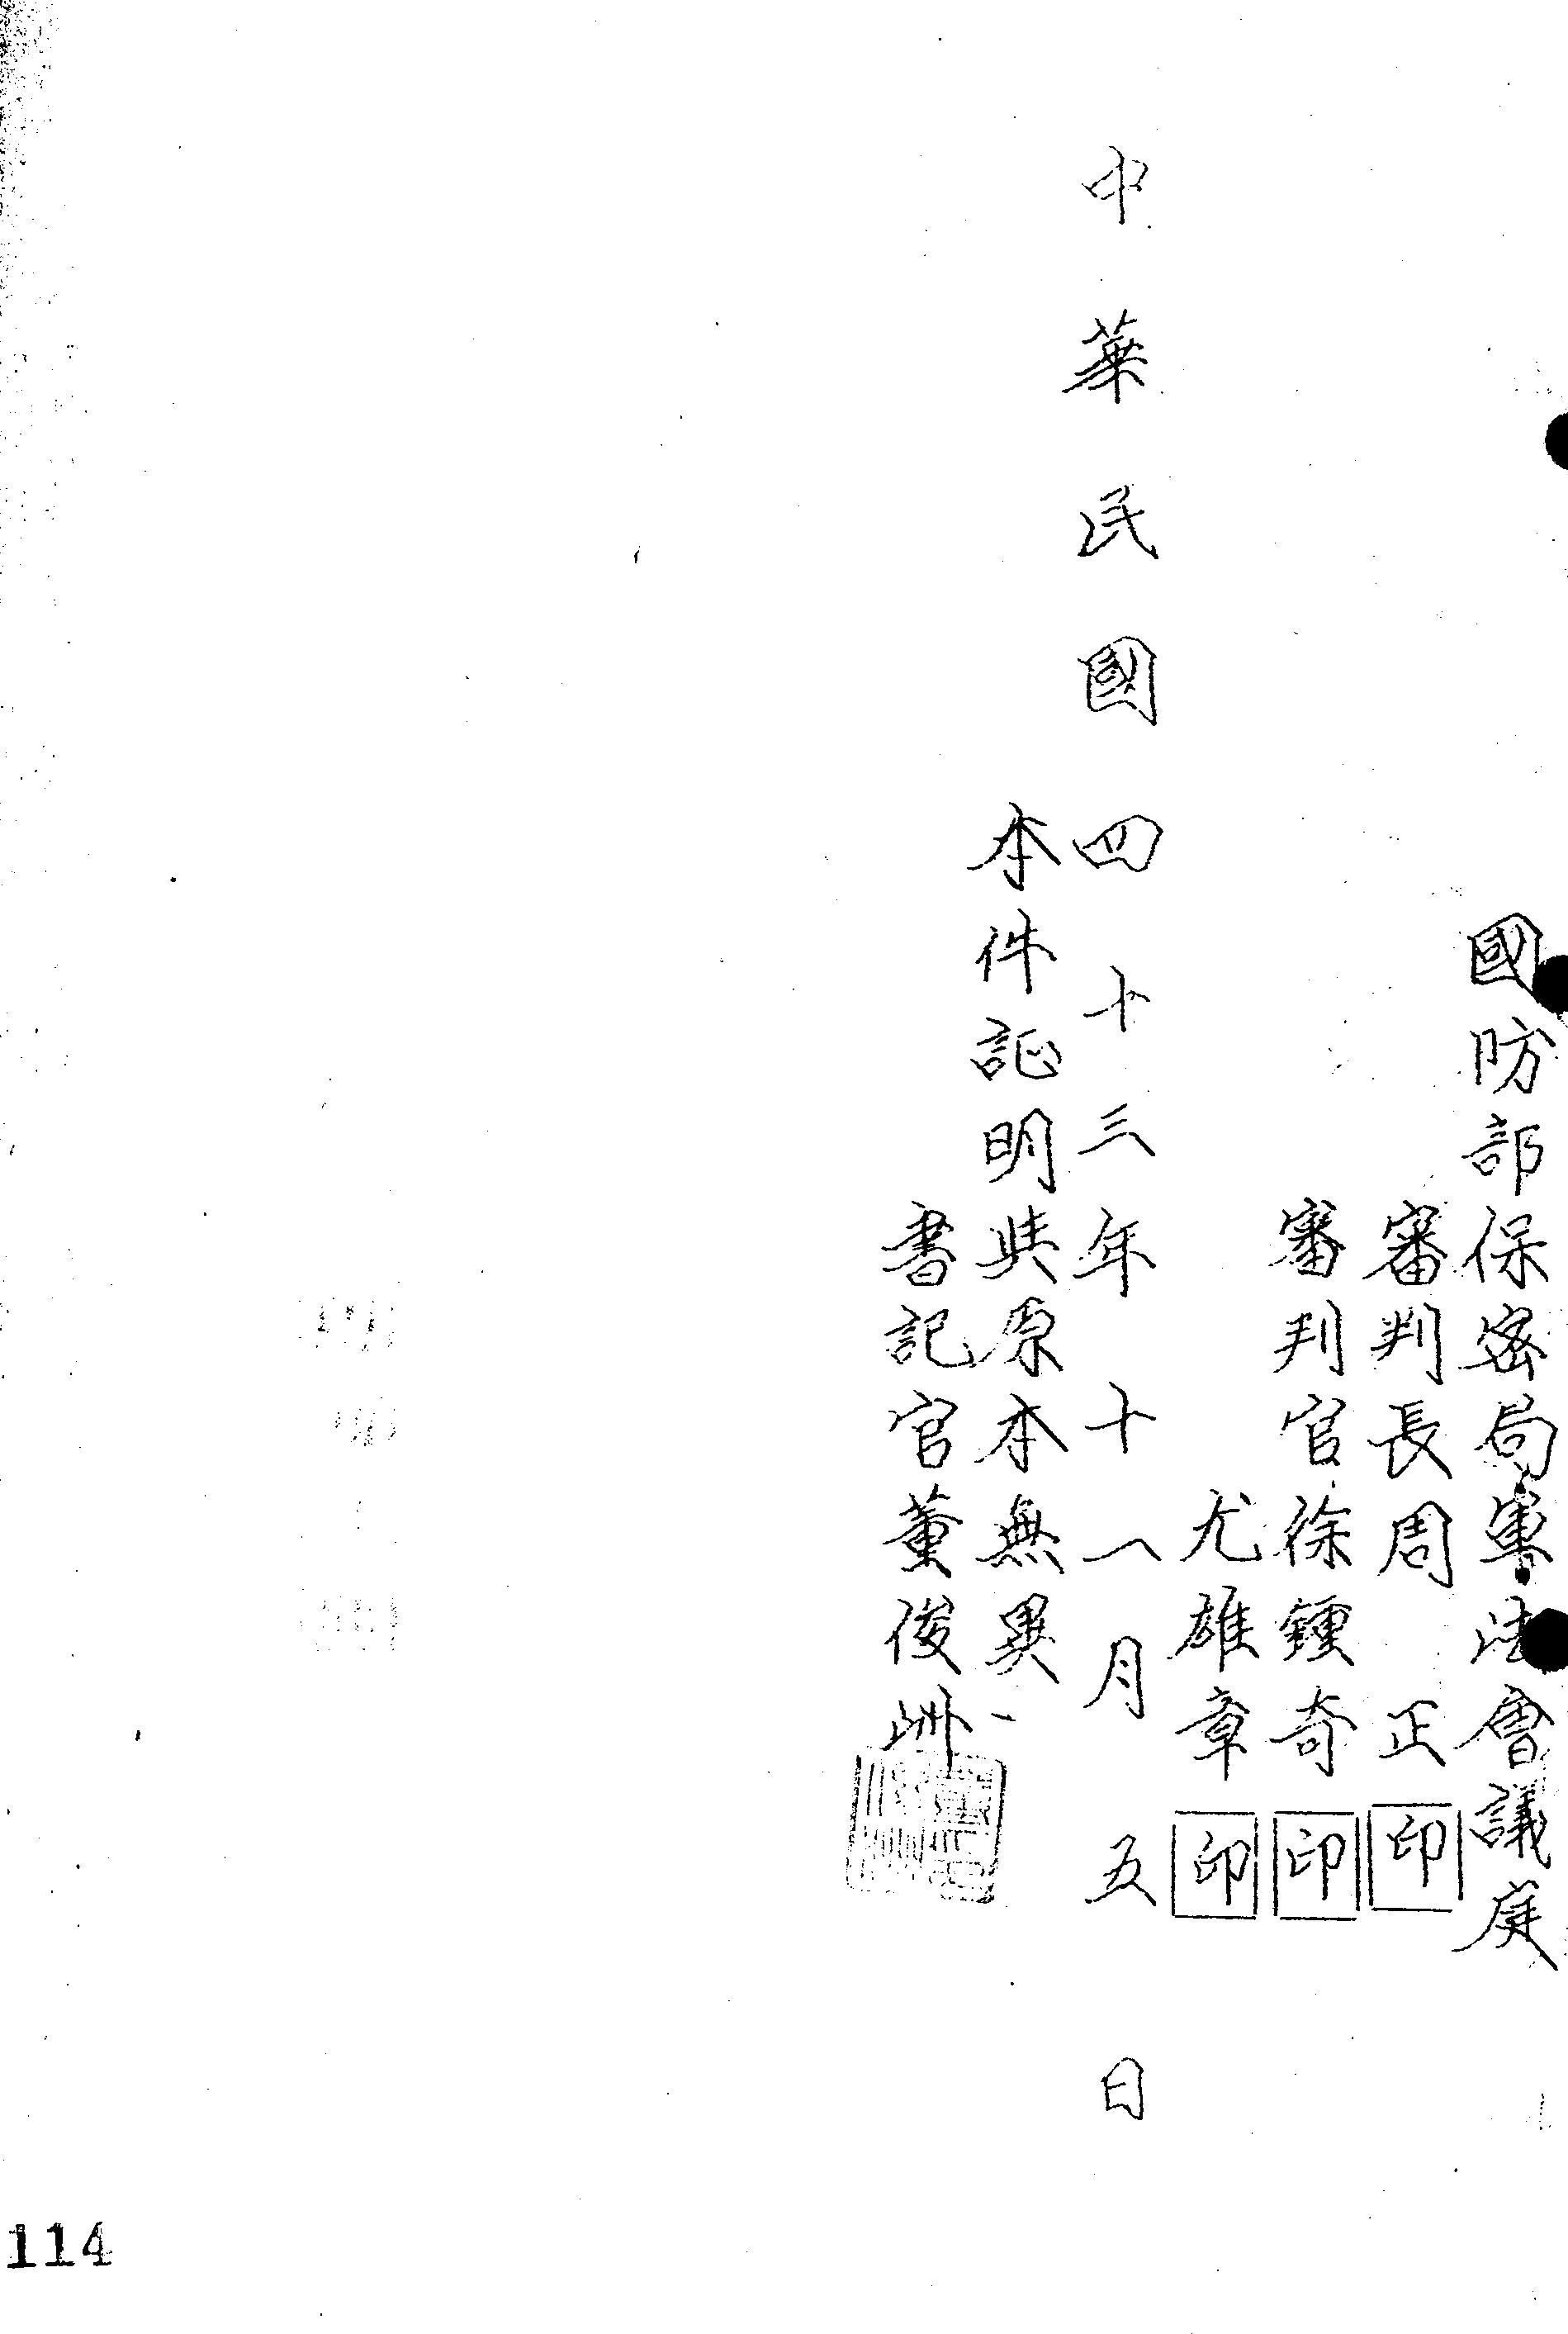 國防部保密局軍法會議庭
審判長周正印
審判官徐鍾奇印
尤雄章印
中華民國四十三年十一月五日
本件証明與原本無異
書記官董俊洲
114